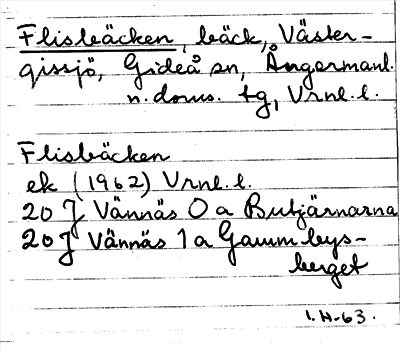 Flisbäcken, bäck, Väster-
gissjö, Gideå sn, Ångermanl.
n. doms. tg, Vrnl. l.
Flisbäcken
ek (1962) Vrnl. l.
20 J Vännäs 0 a Butjärnarna
20 J Vännäs 1 a Gammbys-
berget
I.H-63.